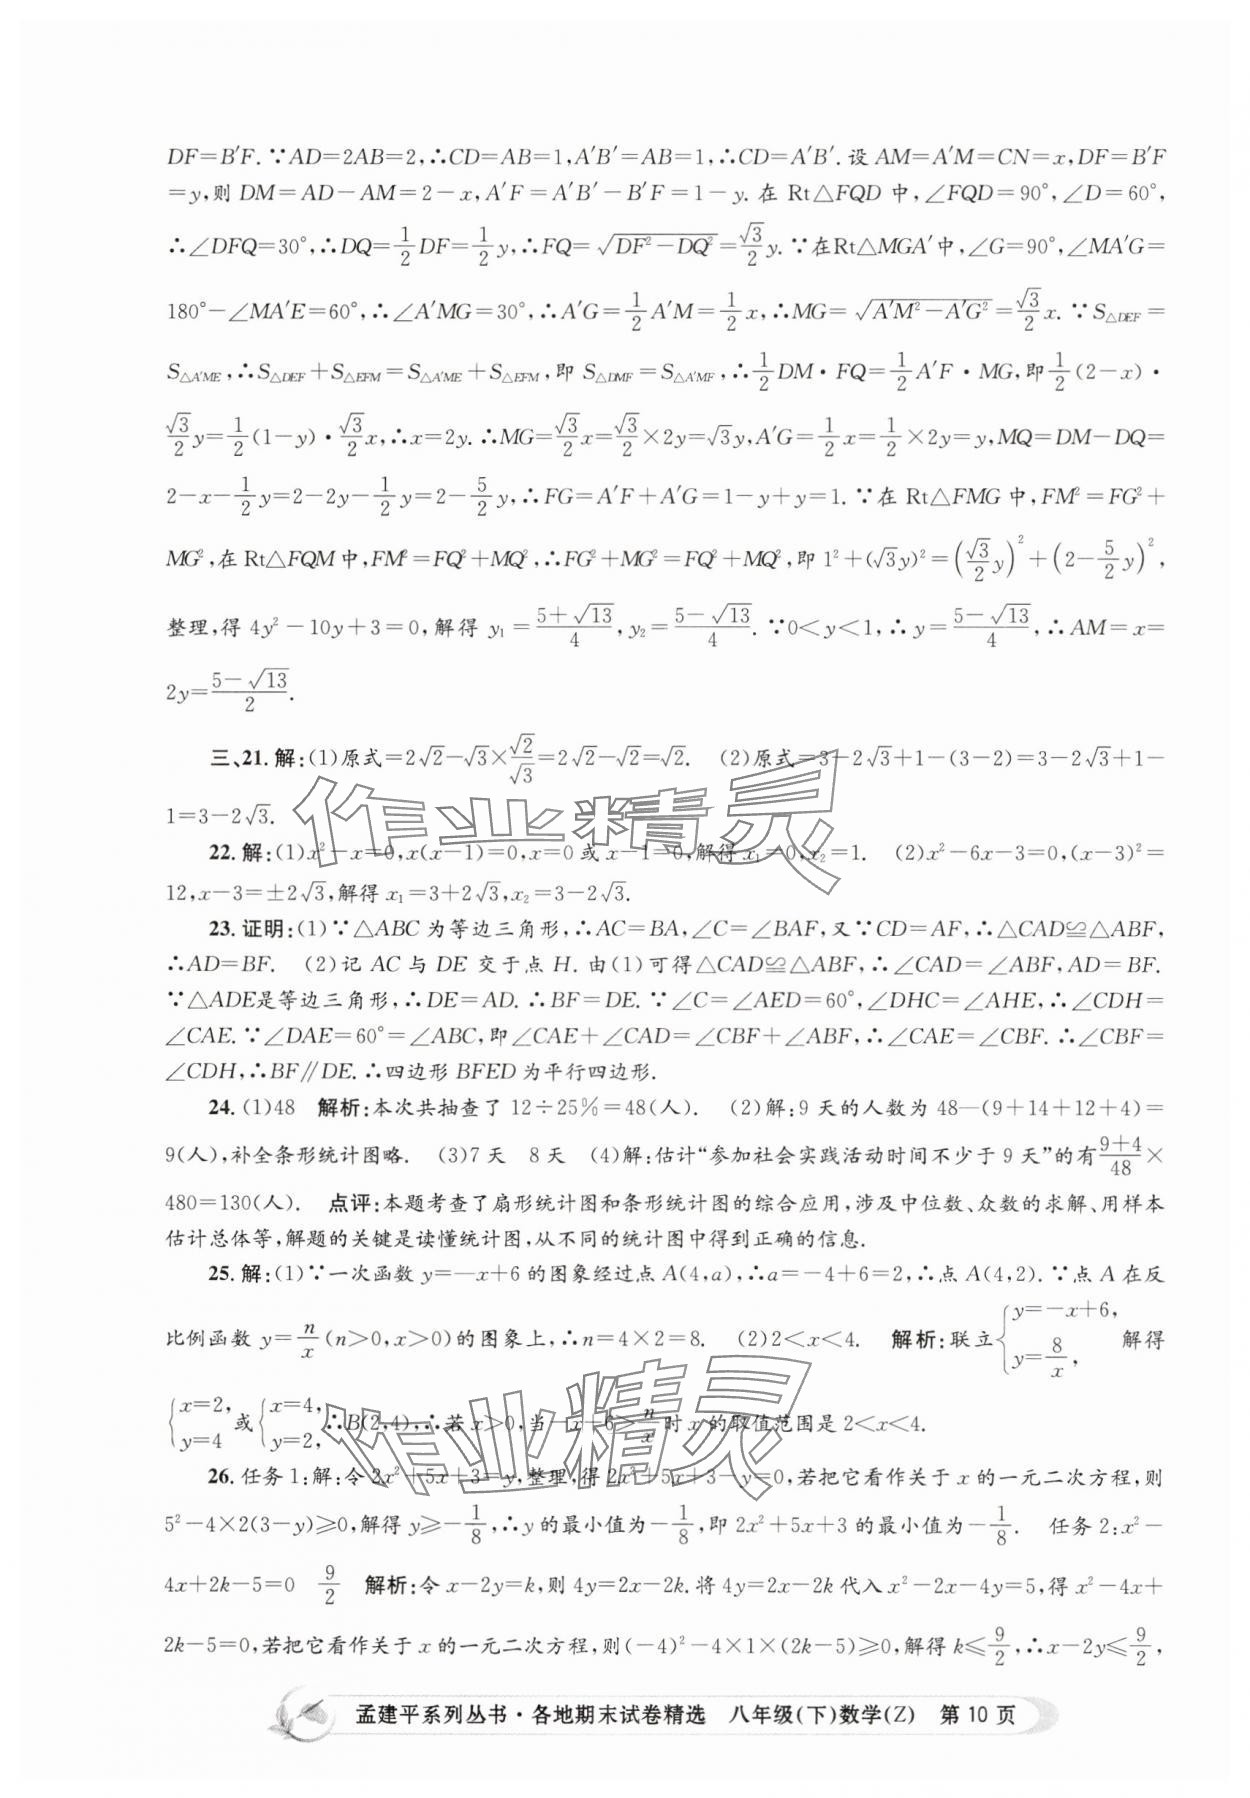 DF=B′F.∵AD=2AB=2,∴CD=AB=1,A′B′=AB=1,∴CD=A′B′.设 AM=A′M=CN=x,DF=B′F
=y,则 DM=AD-AM=2-x,A′F=A′B′-B′F=1-y.在 Rt△FQD 中,∠FQD=90°,∠D=60°,
∴∠DFQ=30°,∴DQ=1/2 DF=1/2 y,∴FQ=√(DF²-DQ²)=√3/2 y.∵在Rt△MGA′中,∠G=90°,∠MA′G=
180°-∠MA′E=60°,∴∠A′MG=30°,∴A′G=1/2 A′M=1/2 x,∴MG=√(A′M²-A′G²)=√3/2 x.∵S△DEF=
S△A′ME,∴S△DEF+S△EFM=S△A′ME+S△EFM,即 S△DMF=S△A′MF,∴1/2 DM·FQ=1/2 A′F·MG,即 1/2 (2-x)·
√3/2 y=1/2 (1-y)·√3/2 x,∴x=2y.∴MG=√3/2 x=√3/2×2y=√3y,A′G=1/2 x=1/2×2y=y,MQ=DM-DQ=
2-x-1/2 y=2-2y-1/2 y=2-5/2 y,∴FG=A′F+A′G=1-y+y=1.∵在 Rt△FMG 中,FM²=FG²+
MG²,在 Rt△FQM 中,FM²=FQ²+MQ²,∴FG²+MG²=FQ²+MQ²,即 1²+(√3y)²=(√3/2 y)²+(2-5/2 y)²,
整理,得 4y²-10y+3=0,解得 y₁=(5+√13)/4,y₂=(5-√13)/4.∵0<y<1,∴y=(5-√13)/4,∴AM=x=
2y=(5-√13)/2.
三、21.解:(1)原式=2√2-√3×√2/√3=2√2-√2=√2.　(2)原式=3-2√3+1-(3-2)=3-2√3+1-
1=3-2√3.
22.解:(1)x²-x=0,x(x-1)=0,x=0 或 x-1=0,解得 x₁=0,x₂=1.　(2)x²-6x-3=0,(x-3)²=
12,x-3=±2√3,解得 x₁=3+2√3,x₂=3-2√3.
23.证明:(1)∵△ABC 为等边三角形,∴AC=BA,∠C=∠BAF,又∵CD=AF,∴△CAD≌△ABF,
∴AD=BF.　(2)记 AC 与 DE 交于点 H.由(1)可得△CAD≌△ABF,∴∠CAD=∠ABF,AD=BF.
∵△ADE是等边三角形,∴DE=AD.∴BF=DE.∵∠C=∠AED=60°,∠DHC=∠AHE,∴∠CDH=
∠CAE.∵∠DAE=60°=∠ABC,即∠CAE+∠CAD=∠CBF+∠ABF,∴∠CAE=∠CBF.∴∠CBF=
∠CDH,∴BF∥DE.∴四边形 BFED 为平行四边形.
24.(1)48　解析:本次共抽查了 12÷25%=48(人).　(2)解:9 天的人数为 48-(9+14+12+4)=
9(人),补全条形统计图略.　(3)7 天　8 天　(4)解:估计“参加社会实践活动时间不少于 9 天”的有(9+4)/48×
480=130(人).　点评:本题考查了扇形统计图和条形统计图的综合应用,涉及中位数、众数的求解、用样本
估计总体等,解题的关键是读懂统计图,从不同的统计图中得到正确的信息.
25.解:(1)∵一次函数 y=-x+6 的图象经过点 A(4,a),∴a=-4+6=2,∴点 A(4,2).∵点 A 在反
比例函数 y=n/x (n>0,x>0)的图象上,∴n=4×2=8.　(2)2<x<4.　解析:联立{y=-x+6, y=8/x,　解得
{x=2, y=4 或{x=4, y=2,∴B(2,4),∴若 x>0,当-x+6>n/x时 x 的取值范围是 2<x<4.
26.任务 1:解:令 2x²+5x+3=y,整理,得 2x²+5x+3-y=0,若把它看作关于 x 的一元二次方程,则
5²-4×2(3-y)≥0,解得 y≥-1/8,∴y 的最小值为-1/8,即 2x²+5x+3 的最小值为-1/8.　任务 2:x²-
4x+2k-5=0　9/2　解析:令 x-2y=k,则 4y=2x-2k.将 4y=2x-2k 代入 x²-2x-4y=5,得 x²-4x+
2k-5=0,若把它看作关于 x 的一元二次方程,则(-4)²-4×1×(2k-5)≥0,解得 k≤9/2,∴x-2y≤9/2,
孟建平系列丛书·各地期末试卷精选　八年级(下)数学(Z)　第 10 页
作业精灵
作业精灵